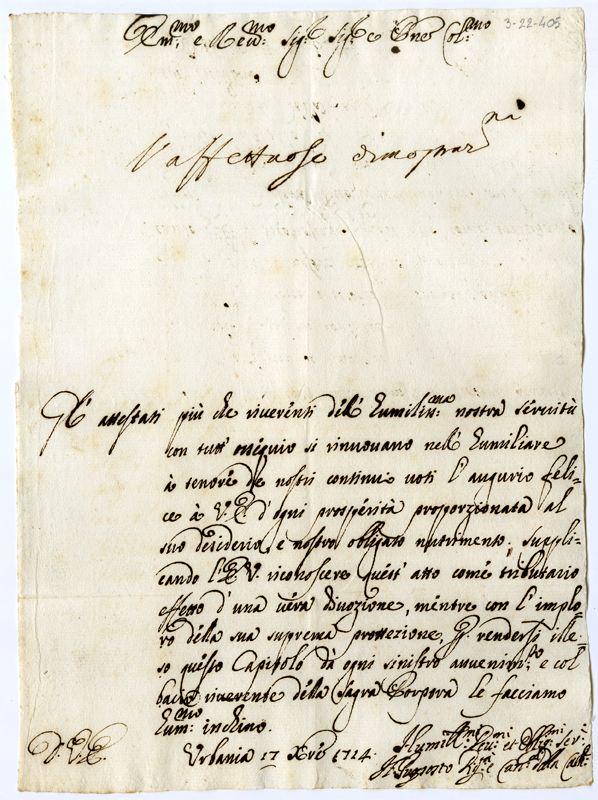 3-22-405
Em.mo e Rev.mo Sig.r Sig.r e Pne Col.mo
l'affettuose dimostrar.ni
Gl' attestati più che riverenti dell' humiliss.ma nostra servitù
con tutt' ossequio si rinnovano nell' humiliare
à tenore de nostri continui voti l' augurio feli-
ce à V.E. d'ogni prosperità proporzionata al
suo desiderio, e nostro obligato nutrimento; suppli-
cando l'E.V. riconoscere quest' atto come tributario
effetto d'una vera divozione, mentre con l' implo-
ro della sua suprema protezzione, p. rendersi ille-
so questo Capitolo dà ogni sinistro avvenim.to, e col
bacio riverente della Sagra Porpora le facciamo
hum.mo inchino.
D.V.E.
Urbania 17 Xbre 1714.
Humil.mi Dev.mi et Oblig.mi Ser.i
Il Preposto Dig.tà e Can.ci della Catt.le